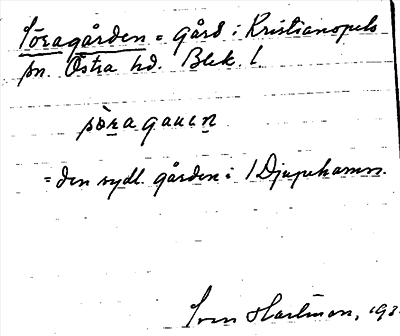 Söragården = Gård i Kristianopels
sn. Östra hd. Blek. l.
sòragauen
= den sydl. gården i Djupehamn.
Sven Hartman, 193